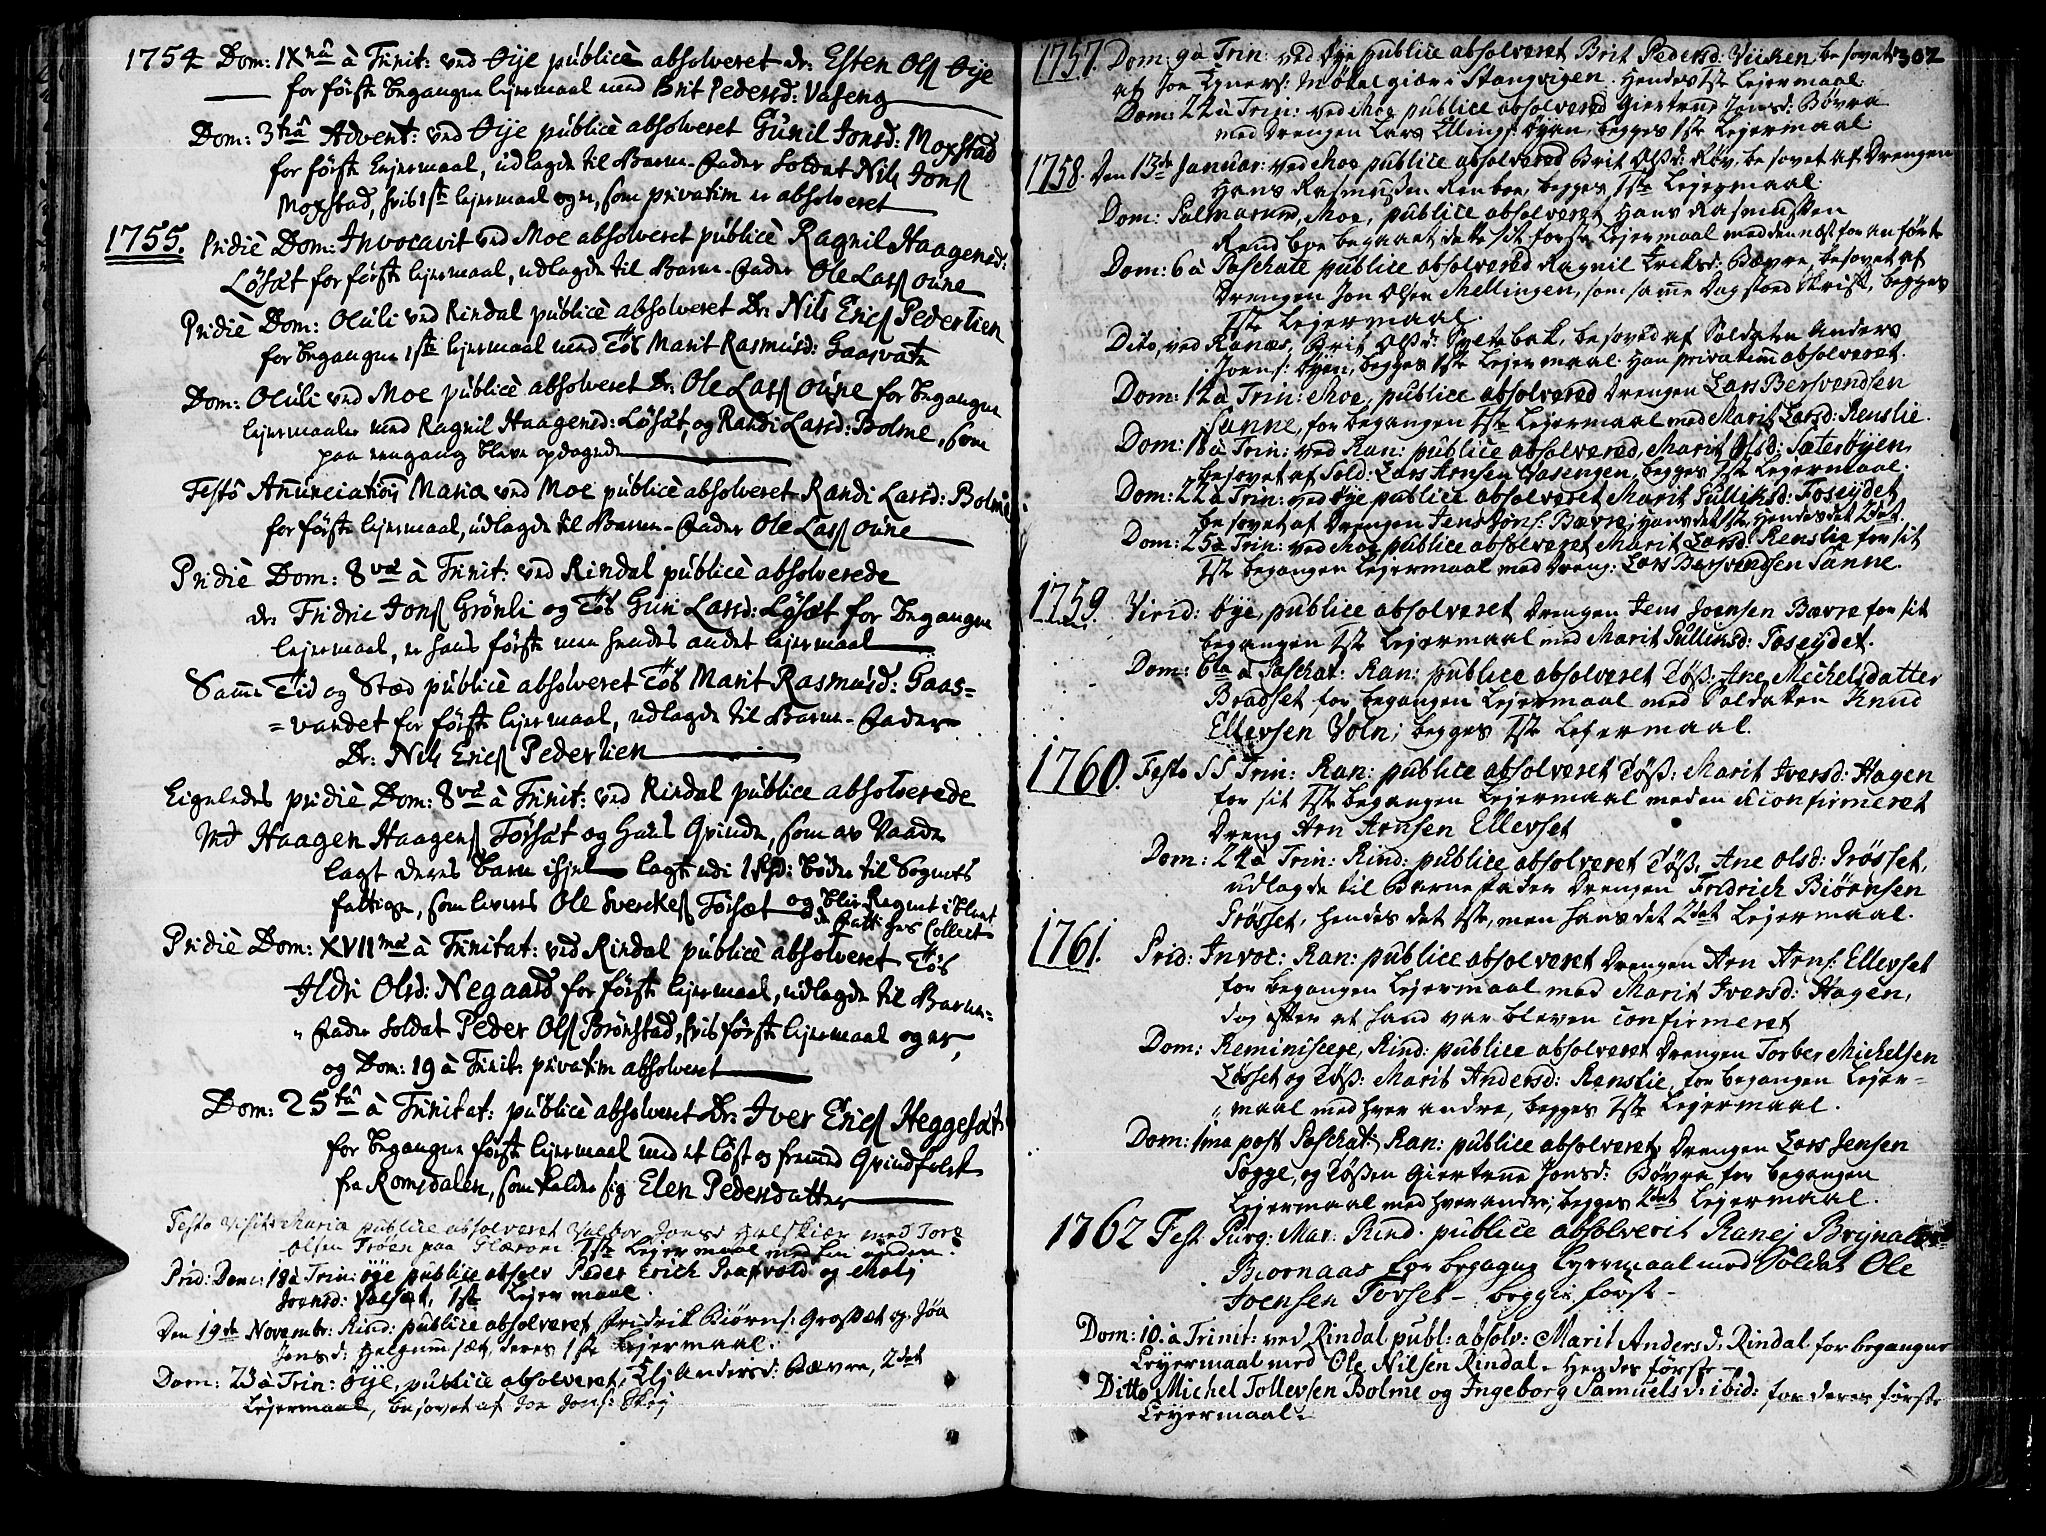 1754 Dom: IXnâ à Trinit: ved Øije pùblicè absolveret dr: Esten Olſ Øije
for förste begangne lejermaal med Brit Pedersd: Vaseng
Dom: 3tiâ Advent: ved Øije pùblicè absolveret Gùnil Jonsd: Moxstad
for förste Lejermaal, udlagde til Barne-Fader Soldat Nils Jonſ
Moxstad, hvis 1ste lejermaal og er, som privatim er absolveret
1755. Pridiè Dom: Invocavit ved Moe absolveret pùblicè Ragnil Haagensd:
Löſæt for förste lejermaal, udlagde til Barne-Fader Ole Larſ Oùne
Pridiè Dom: Ocùli ved Rindal pùblicè absolveret Dr: Nils Ericſ Pederlien
for begangne 1ste lejermaal med Tös Marit Rasmùsd: Gaasvatn
Dom: Ocùli ved Moe pùblicè absolveret Dr: Ole Larſ Oùne for begangne
lejermaaler med Ragnil Haagensd: Löſæt, og Randi Larsd: Bolme, som
paa eengang bleve opdagede
Festô Anùnciationis Mariæ ved Moe pùblicè absolveret Randi Larsd: Bolme
for förste lejermaal, udlagde til Barne-Fader Ole Larſ Oùne
Pridiè Dom: 8vâ à Trinit: ved Rindal pùblicè absolverede
dr: Fridric Jonſ Grönli og Tös Gùri Larsd: Löſæt for begangne
lejermaal, er hans förste men hendes andet lejermaal
Samme Tid og Stæd pùblicè absolveret Tös Marit Rasmùsd: Gaas=
=vandet for förste lejermaal, udlagde til Barne-Fader
Dr: Nils Ericſ Pederlien
Ligeledes pridiè Dom: 8vâ à Trinit: ved Rindal pùblicè absolverede
Md Haagen Haagenſ Törsæt og hans Qvinde, som av Vaade
lagt deres Barn ihjel lagt udi 1 Rd: böder til Sognets
fattige, som leveres Ole Sverckeſ Törsæt og blir Regnet iblant
de Fattiges Collect
Pridiè Dom: XVIImâ à Trinitat: ved Rindal pùblicè absolveret Tös
Ildri Olsd: Negaard for förste lejermaal, udlagde til Barne=
=Fader Soldat Peder Olſ Brönstad, hvis förste lejermaal og er,
og Dom: 19 à Trinit: privatim absolveret
Dom: 25tâ à Trinitat: pùblicè absolveret Dr: Iver Ericſ Heggesæt
for begangne förste lejermaal med et löst og fremmed Qvindfolck
fra Romsdalen, som kalder sig Elen Pedersdatter
Festo Visits Maria publice absolveret Jonsd Halskiær med Tore
Olsen Trøen paa 1ste Lejermaal med
Prid: Dom: 18 à Trin: øye publice absolv Peder Erich og Mali
Joensd: Valsæt, 1ste Lejermaal.
Den 19de Novembr: Rind: publice absolveret Fridrik Biørns: Grosæt og Joa
Jonsd: Helgumsæt, deres 1ste Lejermaal.
Dom: 23 à Trin: Øije, publice absolveret, Elj Andersd: Bævre, 2det
Lejermaal, besovet af Joe Jons: Skej
302
1757. Dom 9 à Trin: ved Øye publice absolveret Brit Pedersd: Viichen besovet
af Joe i Stangvigen. Hendes 1ste Lejermaal.
Dom: 22 à Trin: ved Moe publice absolvered Giertrud Jonsd: Bøvra
med Drengen Lars Ellings: Øyan, begges 1ste Lejermaal.
1758. Den 13de Januar: ved Moe publice absolvered Brit Olsd: Røv, besovet af Drengen
Hans Rasmussen Renboe, begges 1ste Lejermaal.
Dom: Palmarum, Moe, publice absolveret Hans Rasmussen
Rendboe begaaet dette sit første Lejermaal med den næst for anførte
Dom: 6 à Paschate publice absolvered Ragnil Ericksd: Bævre, besovet af
Drengen Jon Olsen Mellingen, som samme Dag stoed Skrift, begges
1ste Lejermaal.
Dito, ved Ranæs, Brit Olsd: Syltebak, besoved af Soldaten Anders
Joens: Øyen, begges 1ste Lejermaal. Han privatim absolveret.
Dom: 12 à Trin: Moe, publice absolvered Drengen Lars Bersvendsen
Sanne, for begangen 1ste Lejermaal med Marit Larsd: Renslie.
Dom: 18 à Trin: ved Ran: publice absolvered, Marit Olsd: Sæterøyen,
besovet af Sold: Lars Arnsen Vasengen, begges 1ste Lejermaal.
Dom: 22 à Trin: ved øye publice absolveret Marit Gulliksd: Foseydet
besovet af Drengen Jens Jons: Bævre, Hans det 1ste, Hendes det 2det.
Dom: 25 à Trin: ved Moe publice absolveret Marit Larsd: Renslie for sit
1ste begangen Lejermaal med Dreng: Lars Bersvendsen Sanne.
1759. Virid: øye, publice absolveret Drengen Jens Joensen Bævre for sit
begangen 1ste Lejermaal med Marit Gulliksd: Foseydet.
Dom: 6ta à Paschat: Ran: publice absolveret Töß: Ane Michelsdatter
Bradset for begangen Lejermaal med Soldaten Knud
Ellevsen Voln, begges 1ste Lejermaal.
1760. Festo SS Trin: Ran: publice absolveret Töß: Marit Iversd: Hagen
for sit 1ste begangen Lejermaal med en uconfirmeret
Dreng Arn Arnsen Ellevset
Dom: 24 à Trin: Rind: publice absolveret Töß: Ane Olsd: Prøsset,
udlagde til Barnefader Drengen Fridrich Biørnsen
Prøsset, hendes det 1ste, men hans det 2det Lejermaal.
1761. Prid: Invoc: Ran: publice absolveret Drengen Arn Arns: Ellevset
for begangen Lejermaal med Marit Iversd: Hagen,
dog efter at hand var bleven confirmeret
Dom: Reminiscere, Rind: publice absolveret Drengen Torber Michelsen
Løsset og Töß: Marit Andersd: Renslie, for begangen Lejer=
=maal med hver andre, begges 1ste Lejermaal.
Dom: 1ma post Paschat, Ran: publice absolveret, Drengen Lars Jensen
Sogge, og Tößen Giertrue Jonsd: Bøvra for begangen
Lejermaal med hver andre, begges 2det Lejermaal.
1762 Fest Purg: Mar: Rind: publice absolverit Ranej Brynals
Biornaas for begagne Lyermaal med Soldat Ole
Joensen Torset - beggis først -
Dom: 10. à Trinit: ved Rindal publ: absolv: Marit Anders d: Rindal for begangne
Leyermaal med Ole Nilsen Rindal - Hendes förste -
Ditto Michel Tollevsen Bolme og Ingeborg Samuels d: ibid: for deres förste
Leyermaal.